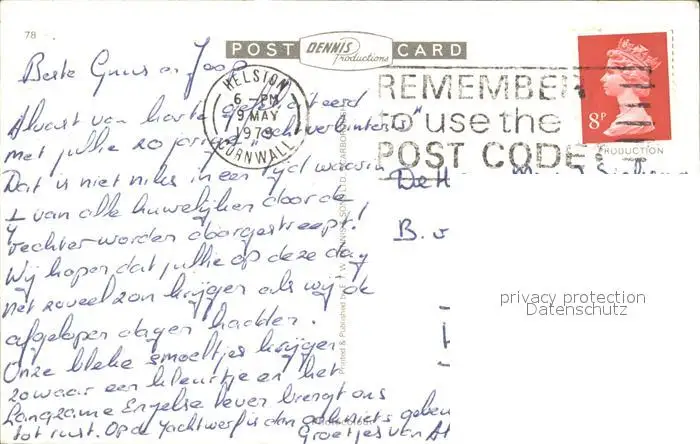 78
POST DENNIS Productions CARD
Beste Guus en Joop
HELSTON
6 - PM
9 MAY
1979
CORNWALL
REMEMBER
to use the
POST CODE
8P
PRODUCTION
Alvast van harte gefeliciteerd
met jullie 20 jarige echtverbintenis
Dat is niet niks in een tijd waarin
1/4 van alle huwelijken door de
rechter worden doorgestreept!
Wij hopen dat jullie op deze dag
net zoveel zon krijgen als wij de
afgelopen dagen hadden.
Onze bleke smoeltjes krijgen
zowaar een kleurtje en het
langzame Engelse leven brengt ons
tot rust. Op de Yachtwerf is dan ook niets gebeu
Groetjes van
De H
B. v
Printed & Published by E.T.W. DENNIS & SONS LTD. SCARBOROUGH
privacy protection
Datenschutz